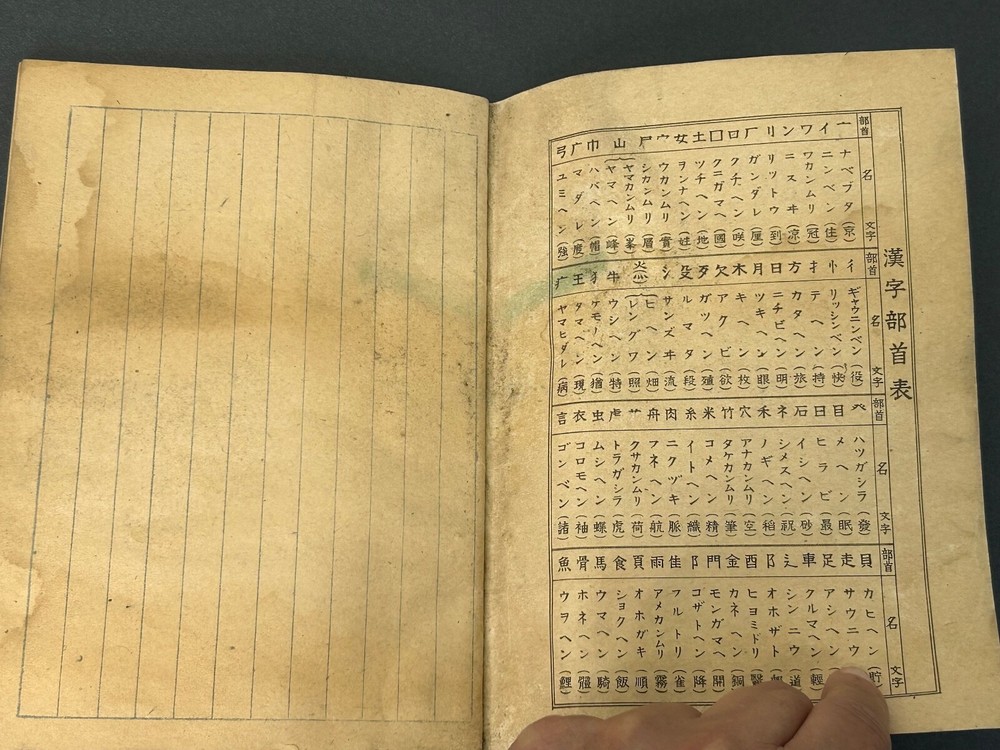 漢字部首表
部首 名 文字
亠 ナベブタ (京)
イ ニンベン (住)
冖 ワカンムリ (冠)
冫 ニスヰ (凉)
リ リットウ (到)
厂 ガンダレ (厘)
口 クチヘン (咲)
囗 クニガマヘ (國)
土 ツチヘン (地)
女 ヲンナヘン (姓)
宀 ウカンムリ (實)
尸 シカンムリ (層)
山 ヤマカンムリ (峯)
ヤマヘン (峰)
巾 ハバヘン (帽)
广 マダレ (度)
弓 ユミヘン (強)
部首 名 文字
彳 ギャウニンベン (役)
忄 リッシンベン (快)
扌 テヘン (持)
方 カタヘン (旅)
日 ニチヒヘン (明)
月 ツキヘン
木 キヘン (枚)
欠 アクビ (欲)
歹 ガツヘン (殖)
殳 ルマタ (段)
氵 サンズヰ (流)
火 ヒヘン (畑)
灬 レングワ (照)
牛 ウシヘン (特)
犭 ケモノヘン (猶)
王 タマヘン (現)
疒 ヤマヒダレ (病)
部首 名 文字
癶 ハツガシラ (發)
目 メヘン (眠)
日 ヒラビ (最)
石 イシヘン (砂)
ネ シメスヘン (祝)
禾 ノギヘン (稻)
穴 アナカンムリ (空)
竹 タケカンムリ (筆)
米 コメヘン (精)
糸 イトヘン (織)
肉 ニクヅキ (脈)
舟 フネヘン (航)
艹 クサカンムリ (荷)
虍 トラガシラ (虎)
虫 ムシヘン (蝶)
衣 コロモヘン (袖)
言 ゴンベン (諸)
部首 名 文字
貝 カヒヘン (貯)
走 サウニウ
足 アシヘン
車 クルマヘン (輕)
辶 シンニウ (道)
阝 オホザト
酉 ヒヨミドリ (醫)
金 カネヘン (銅)
門 モンガマヘ (開)
阝 ゴザトヘン (降)
隹 フルトリ (雀)
雨 アメカンムリ (霧)
頁 オホガキ (順)
食 ショクヘン (飯)
馬 ウマヘン (騎)
骨 ホネヘン (體)
魚 ウヲヘン (鯉)